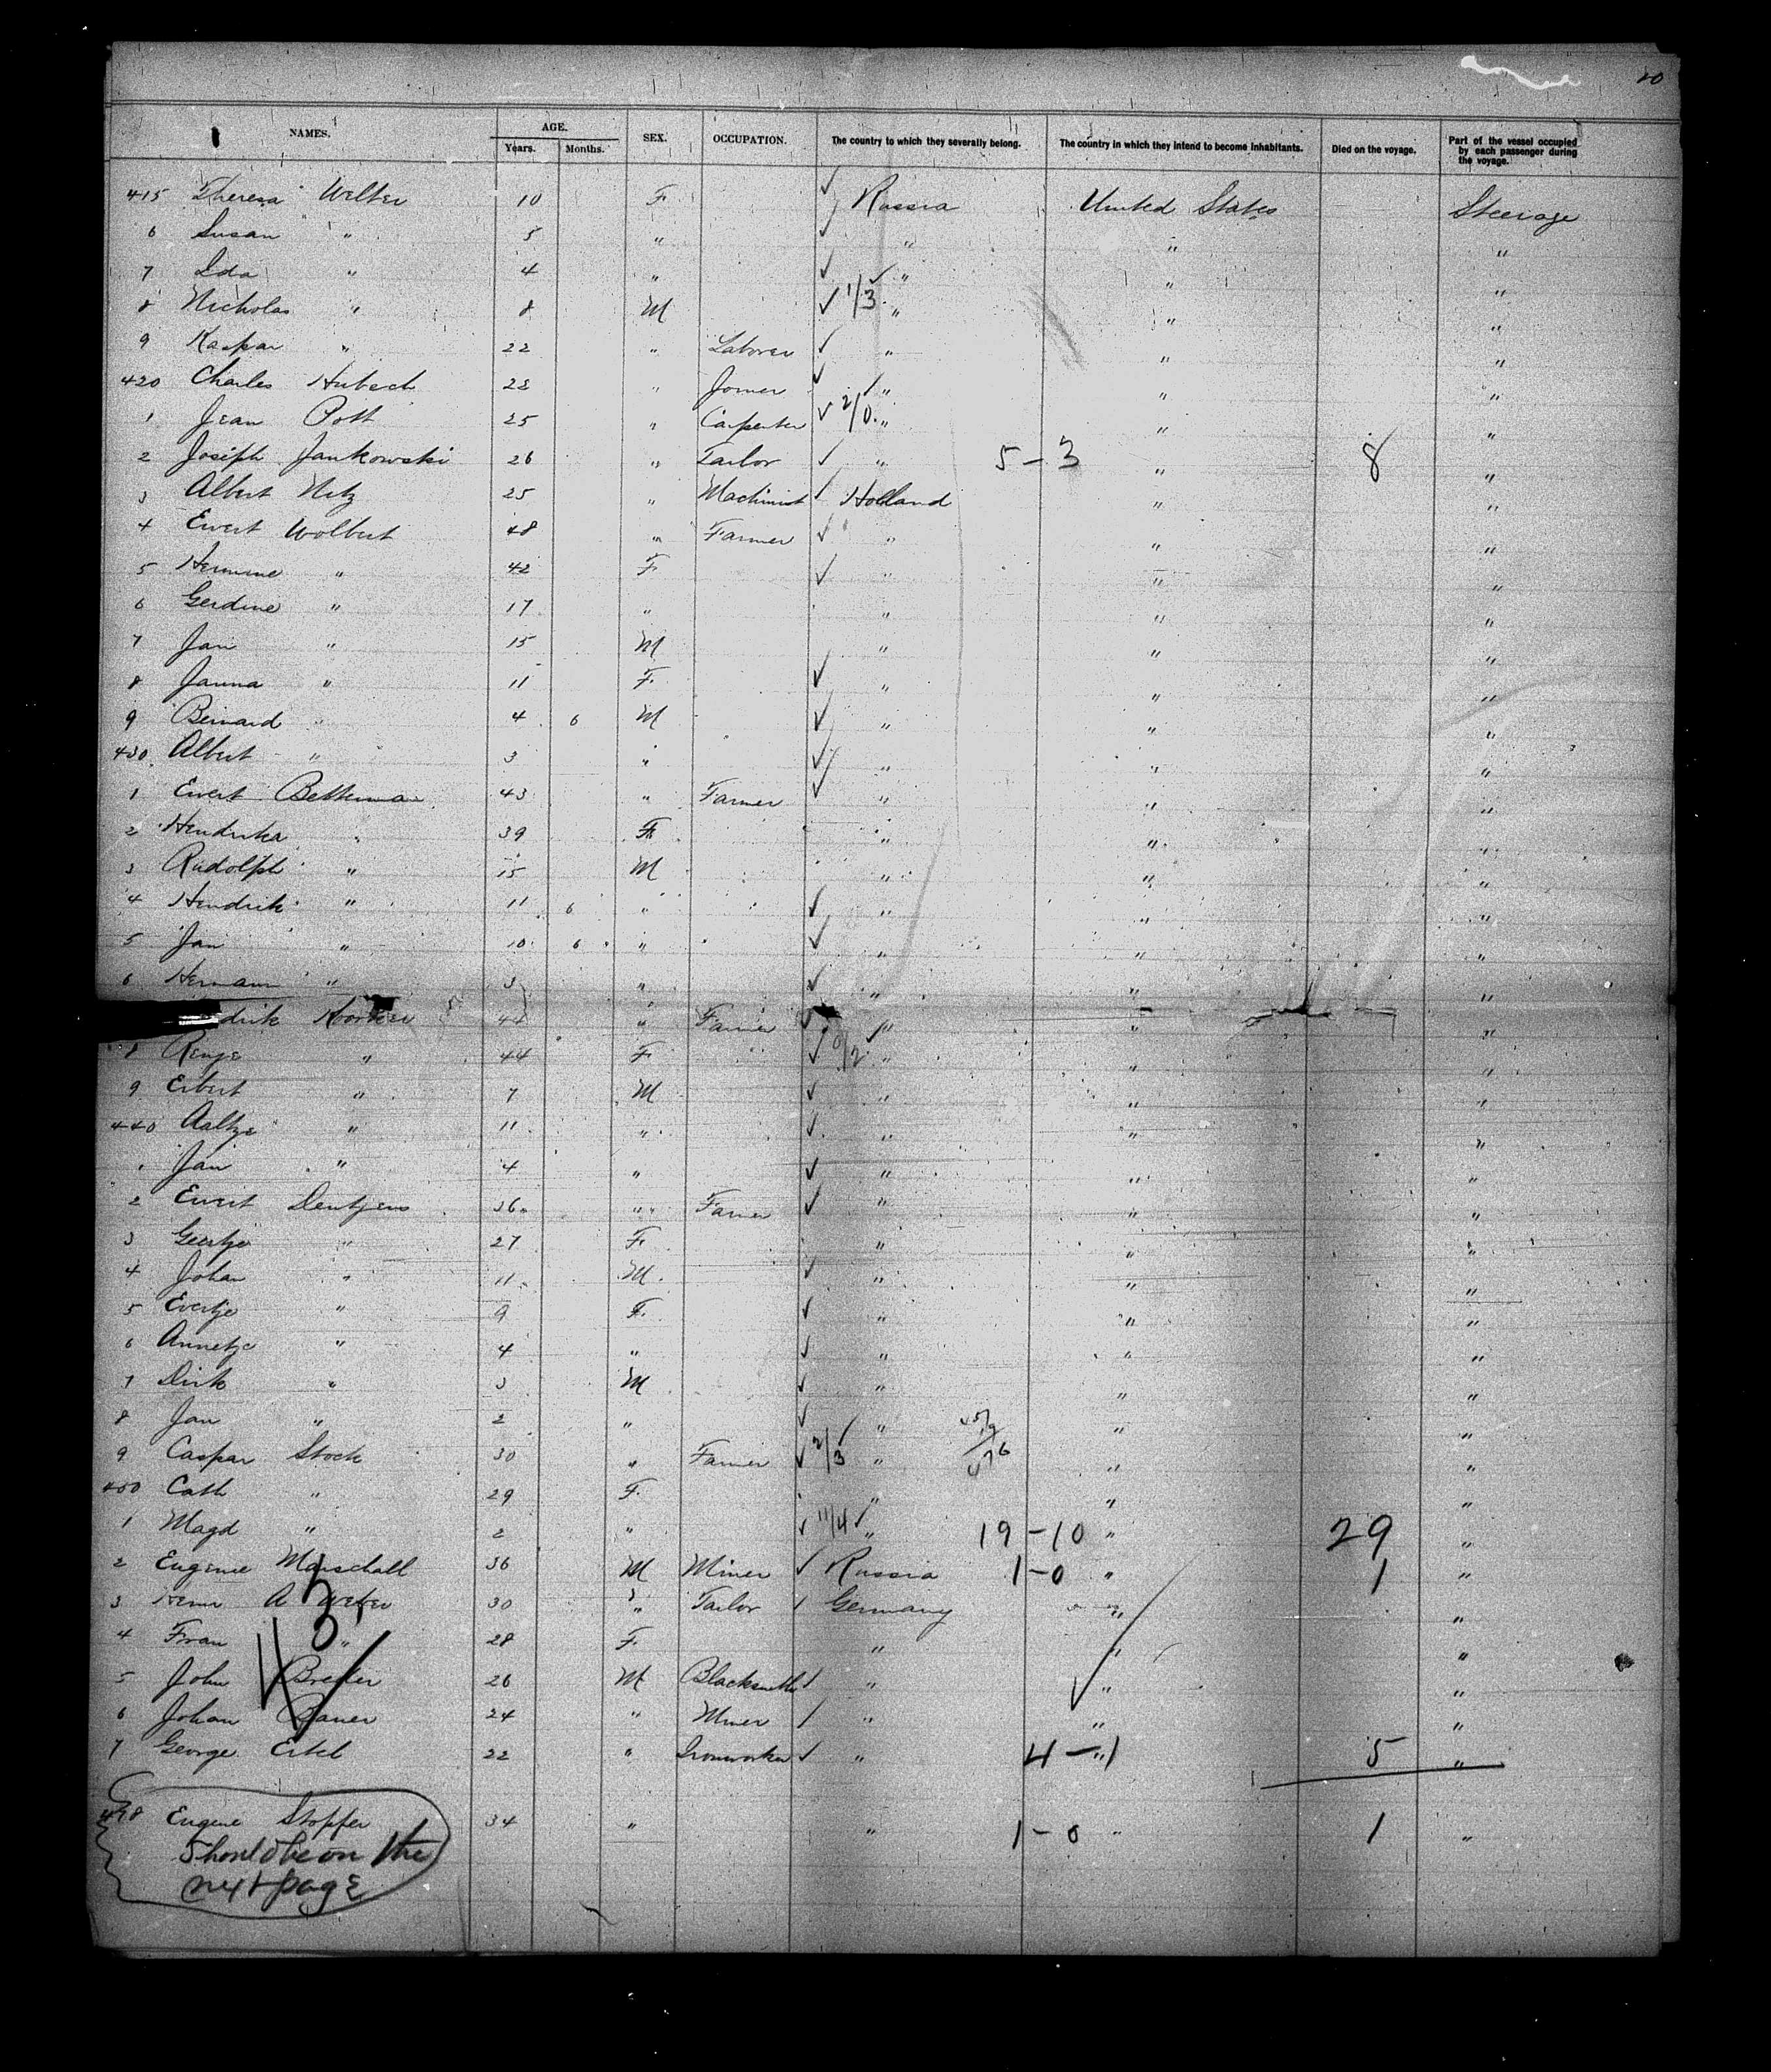 20
NAMES. AGE. SEX. OCCUPATION. The country to which they severally belong. The country in which they intend to become inhabitants. Died on the voyage. Part of the vessel occupied by each passenger during the voyage.
Years. Months.
415 Theresa Welter 10 F. ✓ Russia United States Steerage
6 Susan " 5 " ✓ " " "
7 Ida " 4 " ✓ ✓ " " "
8 Nicholas " 8 M ✓ 1/3 " " "
9 Kaspar " 22 " Laborer ✓ " " "
420 Charles Hubsch 22 " Joiner ✓ " " "
1 Jean Pott 25 " Carpenter ✓ 2/0 " " "
2 Joseph Jankowski 26 " Tailor ✓ " 5-3 " 8 "
3 Albert Netz 25 " Machinist ✓ Holland " "
4 Evert Wolbert 48 " Farmer ✓ " " "
5 Hermine " 42 F. ✓ " " "
6 Gerdine " 17 " " " "
7 Jan " 15 M " " "
8 Janna " 11 F. ✓ " " "
9 Bernard " 4 6 M ✓ " " "
430 Albert " 3 " ✓ " " "
1 Evert Betterman 43 " Farmer ✓ " " "
2 Hendrika " 39 F. " " "
3 Rudolph " 15 M " " "
4 Hendrik " 11 6 " ✓ " " "
5 Jan " 10 6 " ✓ " " "
6 Hermann " 3 " ✓ " " "
drik 44 " Farmer ✓ " " "
8 Renje " 44 F. ✓ 0/2 " " "
9 Erbert " 7 M ✓ " " "
440 Aaltje " 11 " ✓ " " "
Jan " 4 " ✓ " " "
2 Evert Dentjens 36 " Farmer ✓ " " "
3 Geertje " 27 F. " " "
4 Johan " 11 M. ✓ " " "
5 Evertje " 9 F. ✓ " " "
6 Annetje " 4 " ✓ " " "
7 Dirk " 3 M ✓ " " "
8 Jan " 2 " ✓ " " "
9 Caspar Stock 30 " Farmer ✓ 2/3 " " "
450 Cath " 29 F. " " "
1 Magd " 2 " ✓ 11/4 ✓ " 19-10 " 29 "
2 Eugenie Marschall 36 M Miner ✓ Russia 1-0 " 1 "
3 A Weber 30 " Tailor ✓ Germany " "
4 Fran " 28 F. " " "
5 John 26 M Blacksmith ✓ " " "
6 Johan Bauer 24 " Miner / " " "
7 George Ertel 22 " Ironworker ✓ " 4-1 " 5 "
458 Eugene Stopfer 34 " " 1-0 " 1 "
Should be on the
next page